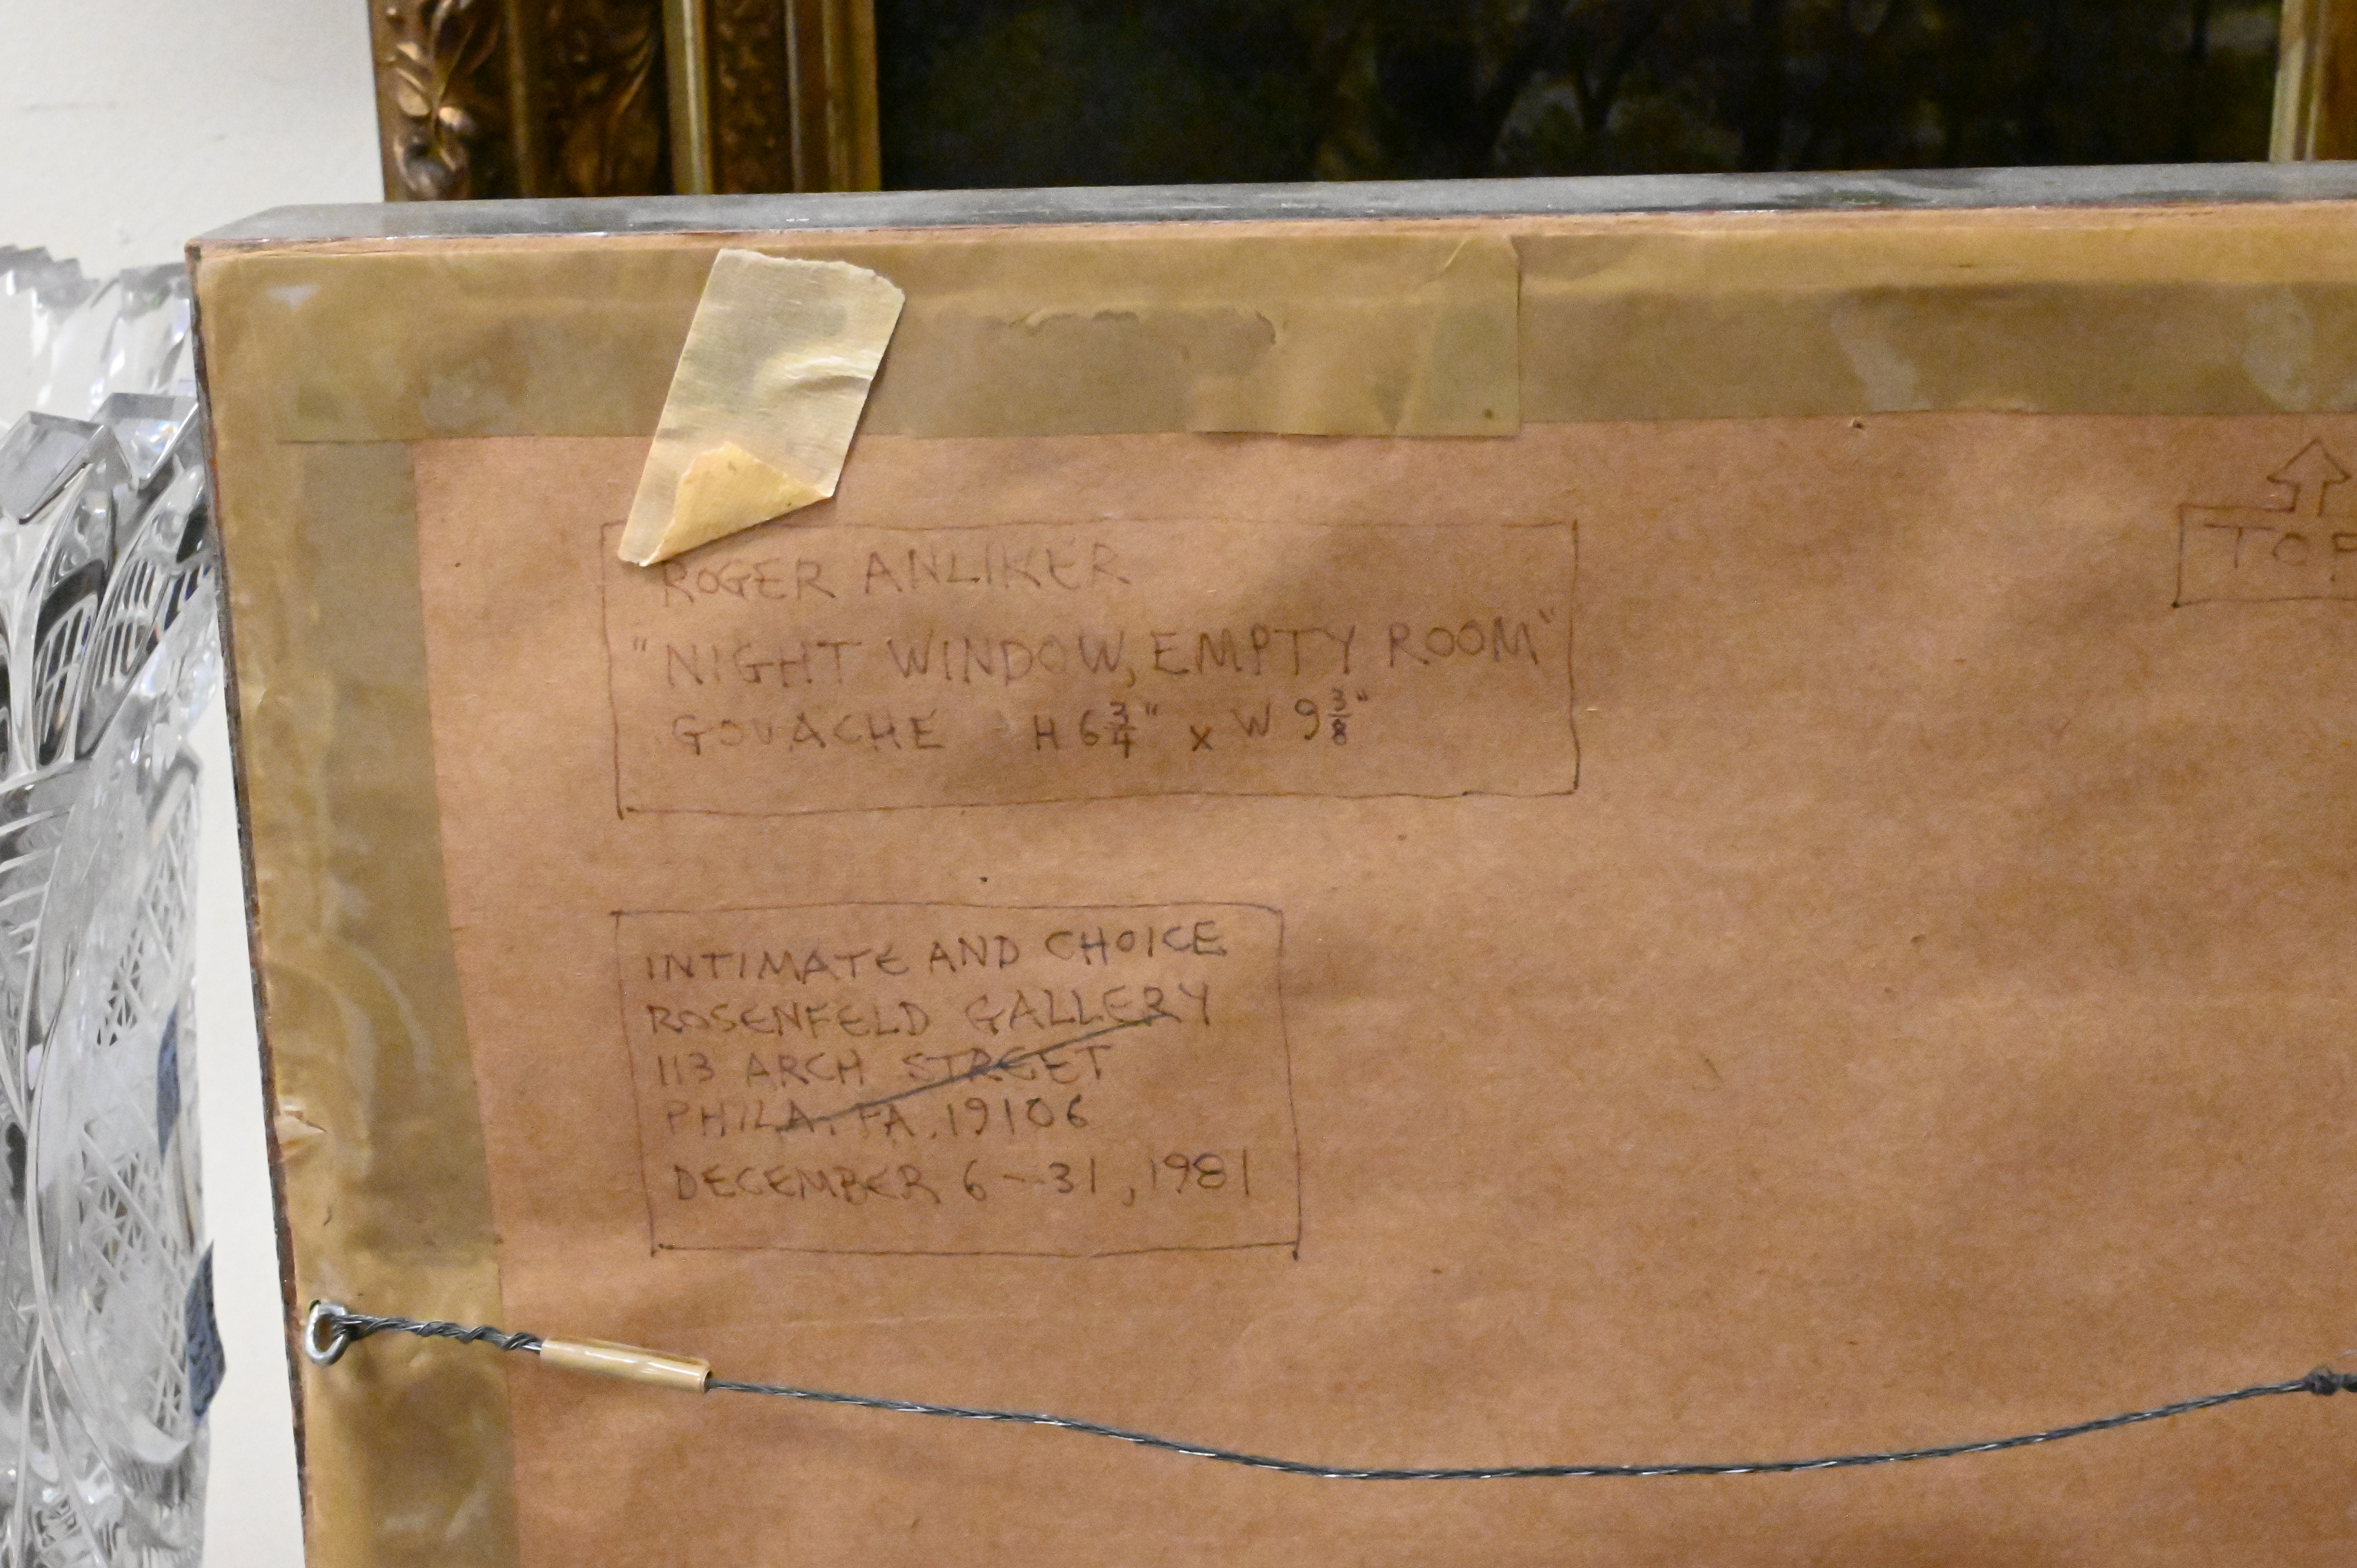 ROGER ANLIKER
"NIGHT WINDOW, EMPTY ROOM"
GOUACHE H 6 3/4" x W 9 3/8"
TOP
INTIMATE AND CHOICE
ROSENFELD GALLERY
113 ARCH STREET
PHILA. PA. 19106
DECEMBER 6-31, 1981